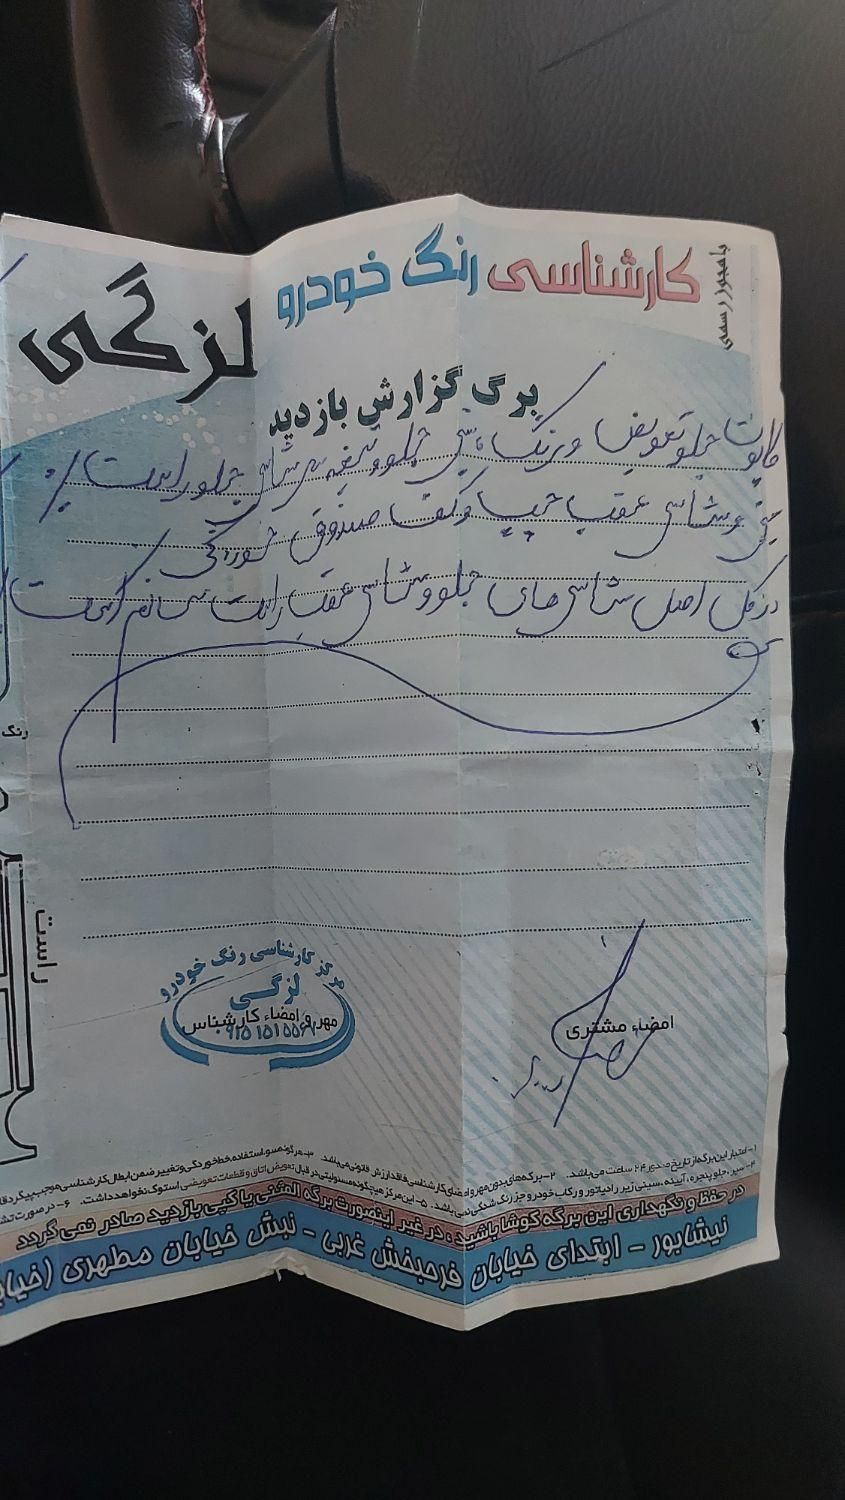 با مجوز رسمی
کارشناسی رنگ خودرو
لزگی
برگ گزارش بازدید
کاپوت جلو تعویض و رنگ، سینی جلو و تیغه سر شاسی جلو راست
سینی و شاسی عقب چپ و کف صندوق خوردگی
در کل اصل شاسی های جلو و شاسی عقب راست سالم است
رنگ
راست
مرکز کارشناسی رنگ خودرو
لزگی
مهر و امضاء کارشناس
امضاء مشتری
۱- اعتبار این برگه از تاریخ صدور ۲۴ ساعت می‌باشد. ۲- برگه‌های بدون مهر و امضای کارشناسی فاقد ارزش قانونی می‌باشد. ۳- هرگونه سوء استفاده، خط خوردگی و تغییر ضمن ابطال کارشناسی موجب پیگرد
۴- سپر، جلو پنجره، آیینه، سینی زیر رادیاتور و رکاب خودرو جز رنگ شدگی نمی باشد. ۵- این مرکز هیچگونه مسئولیتی در قبال تعویض اتاق و قطعات تعویضی استوک نخواهد داشت. ۶- در صورت
در حفظ و نگهداری این برگه کوشا باشید، در غیر اینصورت برگه المثنی یا کپی بازدید صادر نمی گردد
نیشابور - ابتدای خیابان فرحبخش غربی - نبش خیابان مطهری